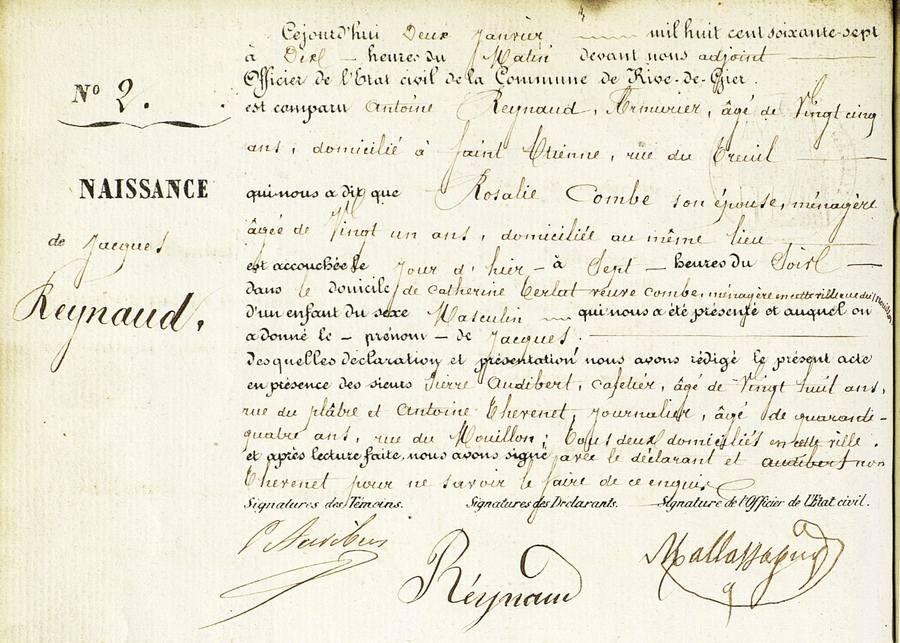 Cejourd'hui Deux Janvier mil huit cent soixante-sept
à Dix heures du Matin devant nous adjoint
Officier de l'Etat civil de la Commune de Rive-de-Gier.
Nº 2.
est comparu Antoine Reynaud, Armurier, âgé de Vingt cinq
ans, domicilié à Saint Etienne, rue du Treuil
NAISSANCE
qui nous a dit que Rosalie Combe son épouse, ménagère
âgée de Vingt un ans, domiciliée au même lieu
de Jacques
Reynaud.
est accouchée le jour d'hier - à Sept - heures du Soir
dans le domicile de Catherine Terlat veuve Combe, ménagère en cette ville rue du Mouillon
d'un enfant du sexe Masculin qui nous a été présenté et auquel on
a donné le - prénom - de Jacques.
desquelles déclaration et présentation nous avons rédigé le présent acte
en présence des sieurs Pierre Audibert, cafetier, âgé de Vingt huit ans,
rue du plâtre et Antoine Thevenet, journalier, âgé de quarante-
quatre ans, rue du Mouillon; tous deux domiciliés en cette ville.
et après lecture faite, nous avons signé avec le déclarant et audibert non
Thevenet pour ne savoir le faire de ce enquis
Signatures des Témoins. Signatures des Déclarants. Signature de l'Officier de l'Etat civil.
P Audibert
Réynaud